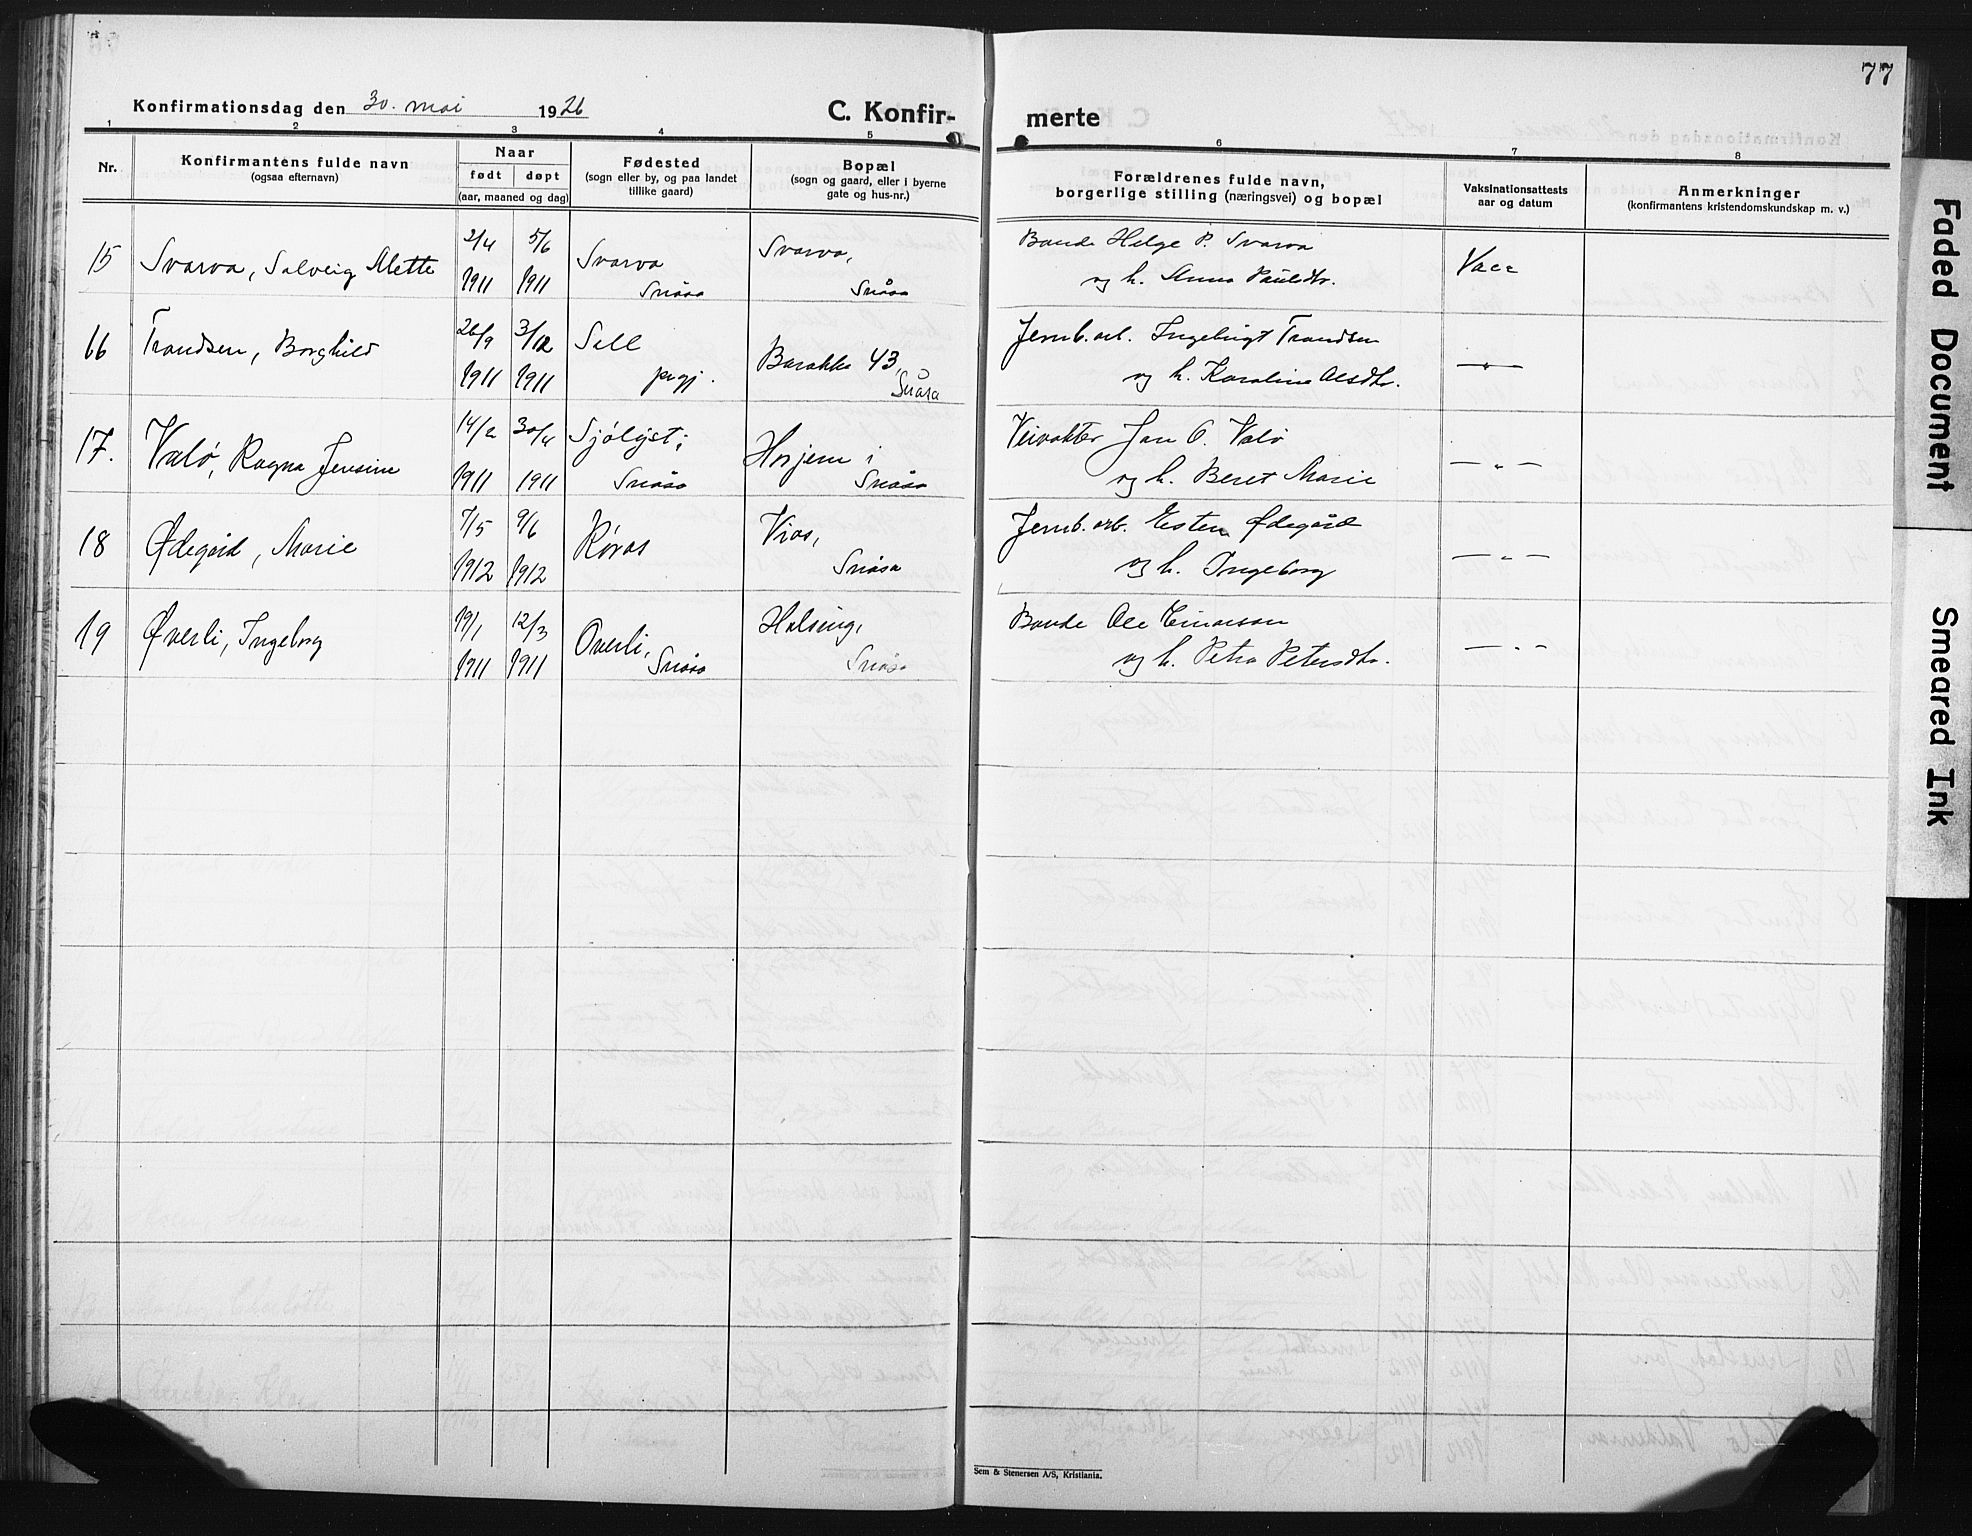 77
Konfirmationsdag den 30. mai 1926
C. Konfir-
merte
1 2 3 4 5 6 7 8
Nr.
Konfirmantens fulde navn
(ogsaa efternavn)
Naar
født døpt
(aar, maaned og dag)
Fødested
(sogn eller by, og paa landet
tillike gaard)
Bopæl
(sogn og gaard, eller i byerne
gate og hus-nr.)
Forældrenes fulde navn,
borgerlige stilling (næringsvei) og bopæl
Vaksinationsattests
aar og datum
Anmerkninger
(konfirmantens kristendomskundskap m. v.)
15 Svarva, Solveig Mette 2/4 1911 5/6 1911 Svarva Snåsa Svarva, Snåsa Bonde Helge P. Svarva
og h. Anna Paulsdtr. Vacc
66 Trondsen, Borghild 26/9 1911 3/12 1911 Sell prgj. Barakke 43, Snåsa Jernb.arb. Ingebrigt Trondsen
og h. Karoline Olsdtr. — " —
17. Valø, Ragna Jensine 14/2 1911 30/4 1911 Sjølyst; Snåsa Horjem i Snåsa Veivokter Jon O. Valø
og h. Beret Marie — " —
18 Ødegård, Marie 7/5 1912 9/6 1912 Røros Vios, Snåsa Jernb.arb. Esten Ødegård
og h. Ingeborg — " —
19 Øverli, Ingeborg 19/1 1911 12/3 1911 Overli, Snåsa Holsing, Snåsa Bonde Ole Einarson
og h. Petra Petersdtr. — " —
Sem & Stenersen A/S, Kristiania.
Faded Document
Smeared Ink